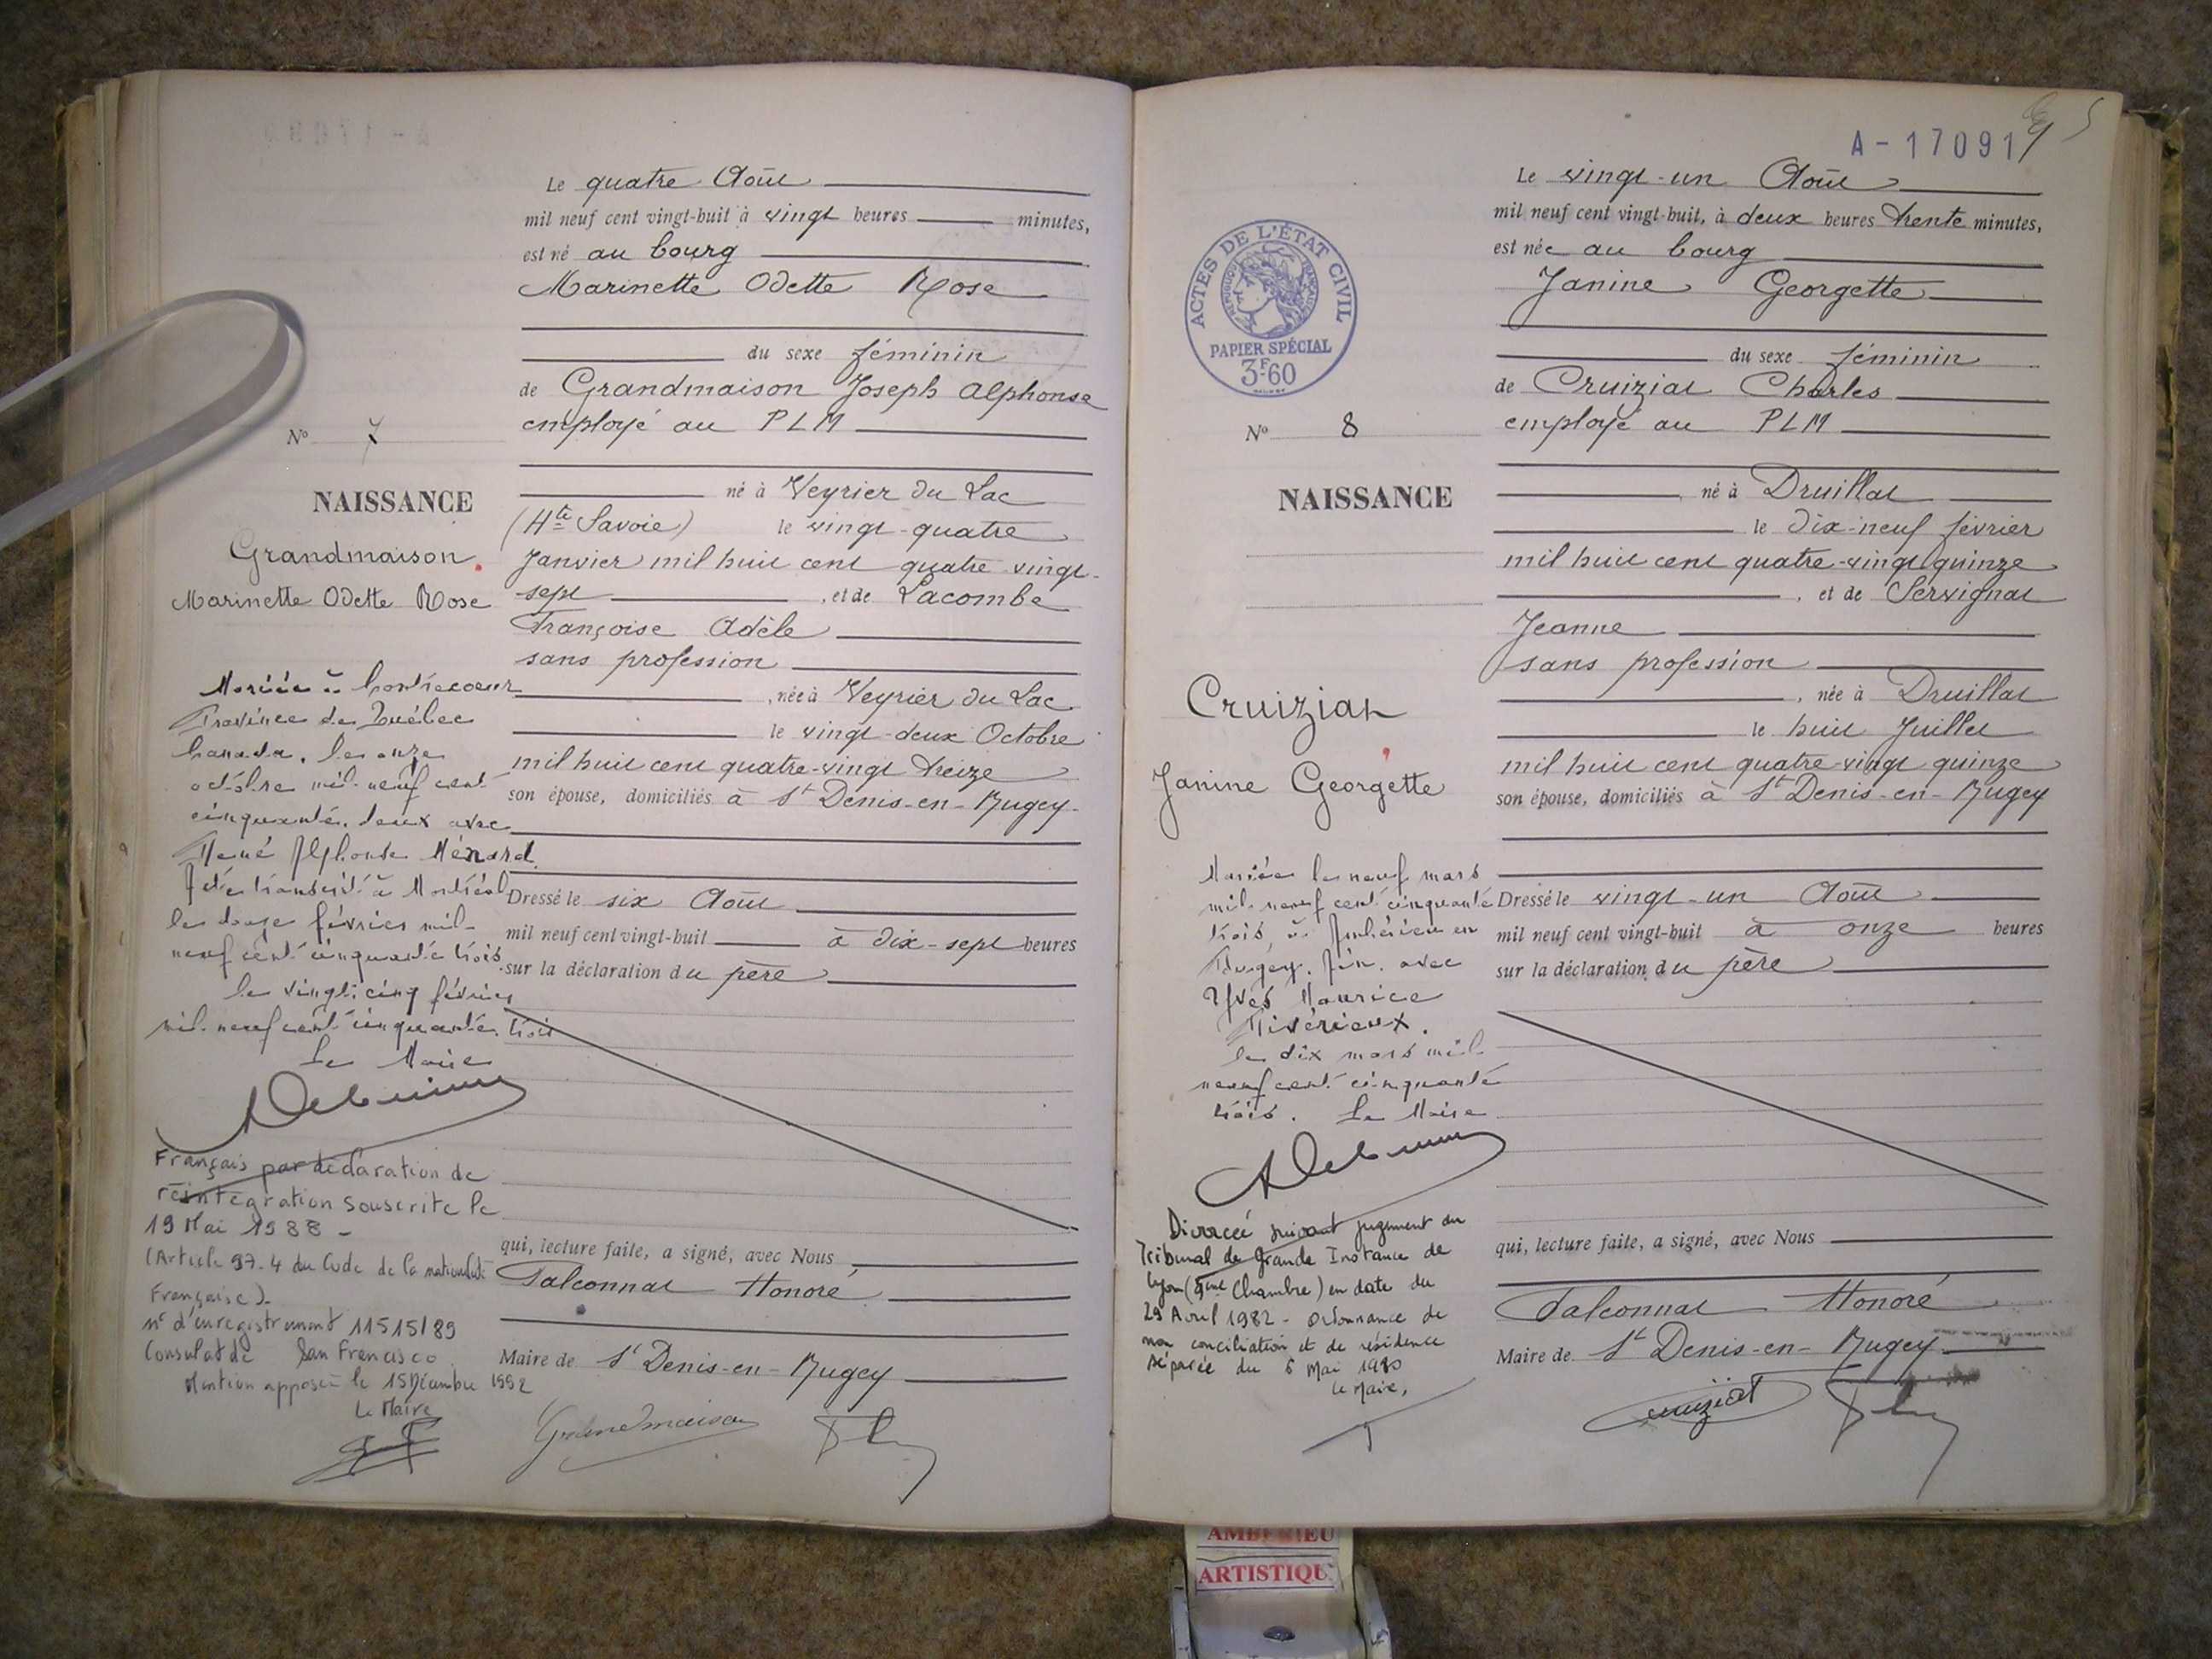 Le quatre Août
mil neuf cent vingt-huit à vingt heures minutes,
est né au bourg
Marinette Odette Rose
du sexe féminin
de Grandmaison Joseph Alphonse
employé au PLM
né à Veyrier du Lac
(Hte Savoie) le vingt-quatre
Janvier mil huit cent quatre-vingt-
sept , et de Lacombe
Françoise Adèle
sans profession
, née à Veyrier du Lac
le vingt-deux Octobre
mil huit cent quatre-vingt treize
son épouse, domiciliés à St Denis-en-Bugey
Dressé le six Août
mil neuf cent vingt-huit à dix-sept heures
sur la déclaration du père
qui, lecture faite, a signé, avec Nous
Falconnat Honoré
Maire de St Denis-en-Bugey
Grandmaison
No 7
NAISSANCE
Grandmaison
Marinette Odette Rose
Mariée à Contrecoeur
Province de Québec
Canada, le onze
octobre mil neuf cent
cinquante deux avec
René Alphonse Ménard.
Acte transcrit à Montréal
le douze février mil
neuf cent cinquante trois.
le vingt cinq février
mil neuf cent cinquante trois
Le Maire
Français par déclaration de
réintégration souscrite le
19 Mai 1988 -
(Article 97-4 du Code de la nationalité
Française)-
n° d'enregistrement 11515/89
Consulat de San Francisco
Mention apposée le 15 Décembre 1992
Le Maire
A-17091
Le vingt-un Août
mil neuf cent vingt-huit, à deux heures trente minutes,
est née au bourg
Janine Georgette
du sexe féminin
de Cruiziat Charles
employé au PLM
né à Druillat
le dix-neuf février
mil huit cent quatre-vingt quinze
, et de Servignat
Jeanne
sans profession
, née à Druillat
le huit Juillet
mil huit cent quatre-vingt quinze
son épouse, domiciliés à St Denis-en-Bugey
Dressé le vingt-un Août
mil neuf cent vingt-huit à onze heures
sur la déclaration du père
qui, lecture faite, a signé, avec Nous
Falconnat Honoré
Maire de St Denis-en-Bugey
Cruiziat
ACTES DE L'ÉTAT CIVIL
RÉPUBLIQUE FRANÇAISE
PAPIER SPÉCIAL
3F60
No 8
NAISSANCE
Cruiziat
Janine Georgette
Mariée le neuf mars
mil neuf cent cinquante
trois, à Ambérieu en
Bugey, Ain, avec
Yves Maurice
Rivérieux.
le dix mars mil
neuf cent cinquante
trois. Le Maire
Divorcée suivant jugement du
Tribunal de Grande Instance de
Lyon (9ème Chambre) en date du
29 Avril 1982 - Ordonnance de
non conciliation et de résidence
séparée du 6 Mai 1980
Le Maire,
AMBERIEU
ARTISTIQU